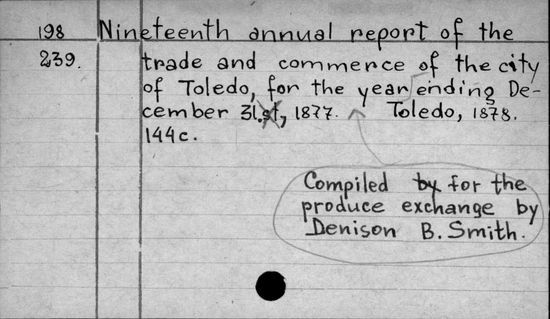 198 Nineteenth annual report of the
239. trade and commerce of the city
of Toledo, for the year ending De-
cember 31.st, 1877. Toledo, 1878.
144c.
Compiled by for the
produce exchange by
Denison B. Smith.